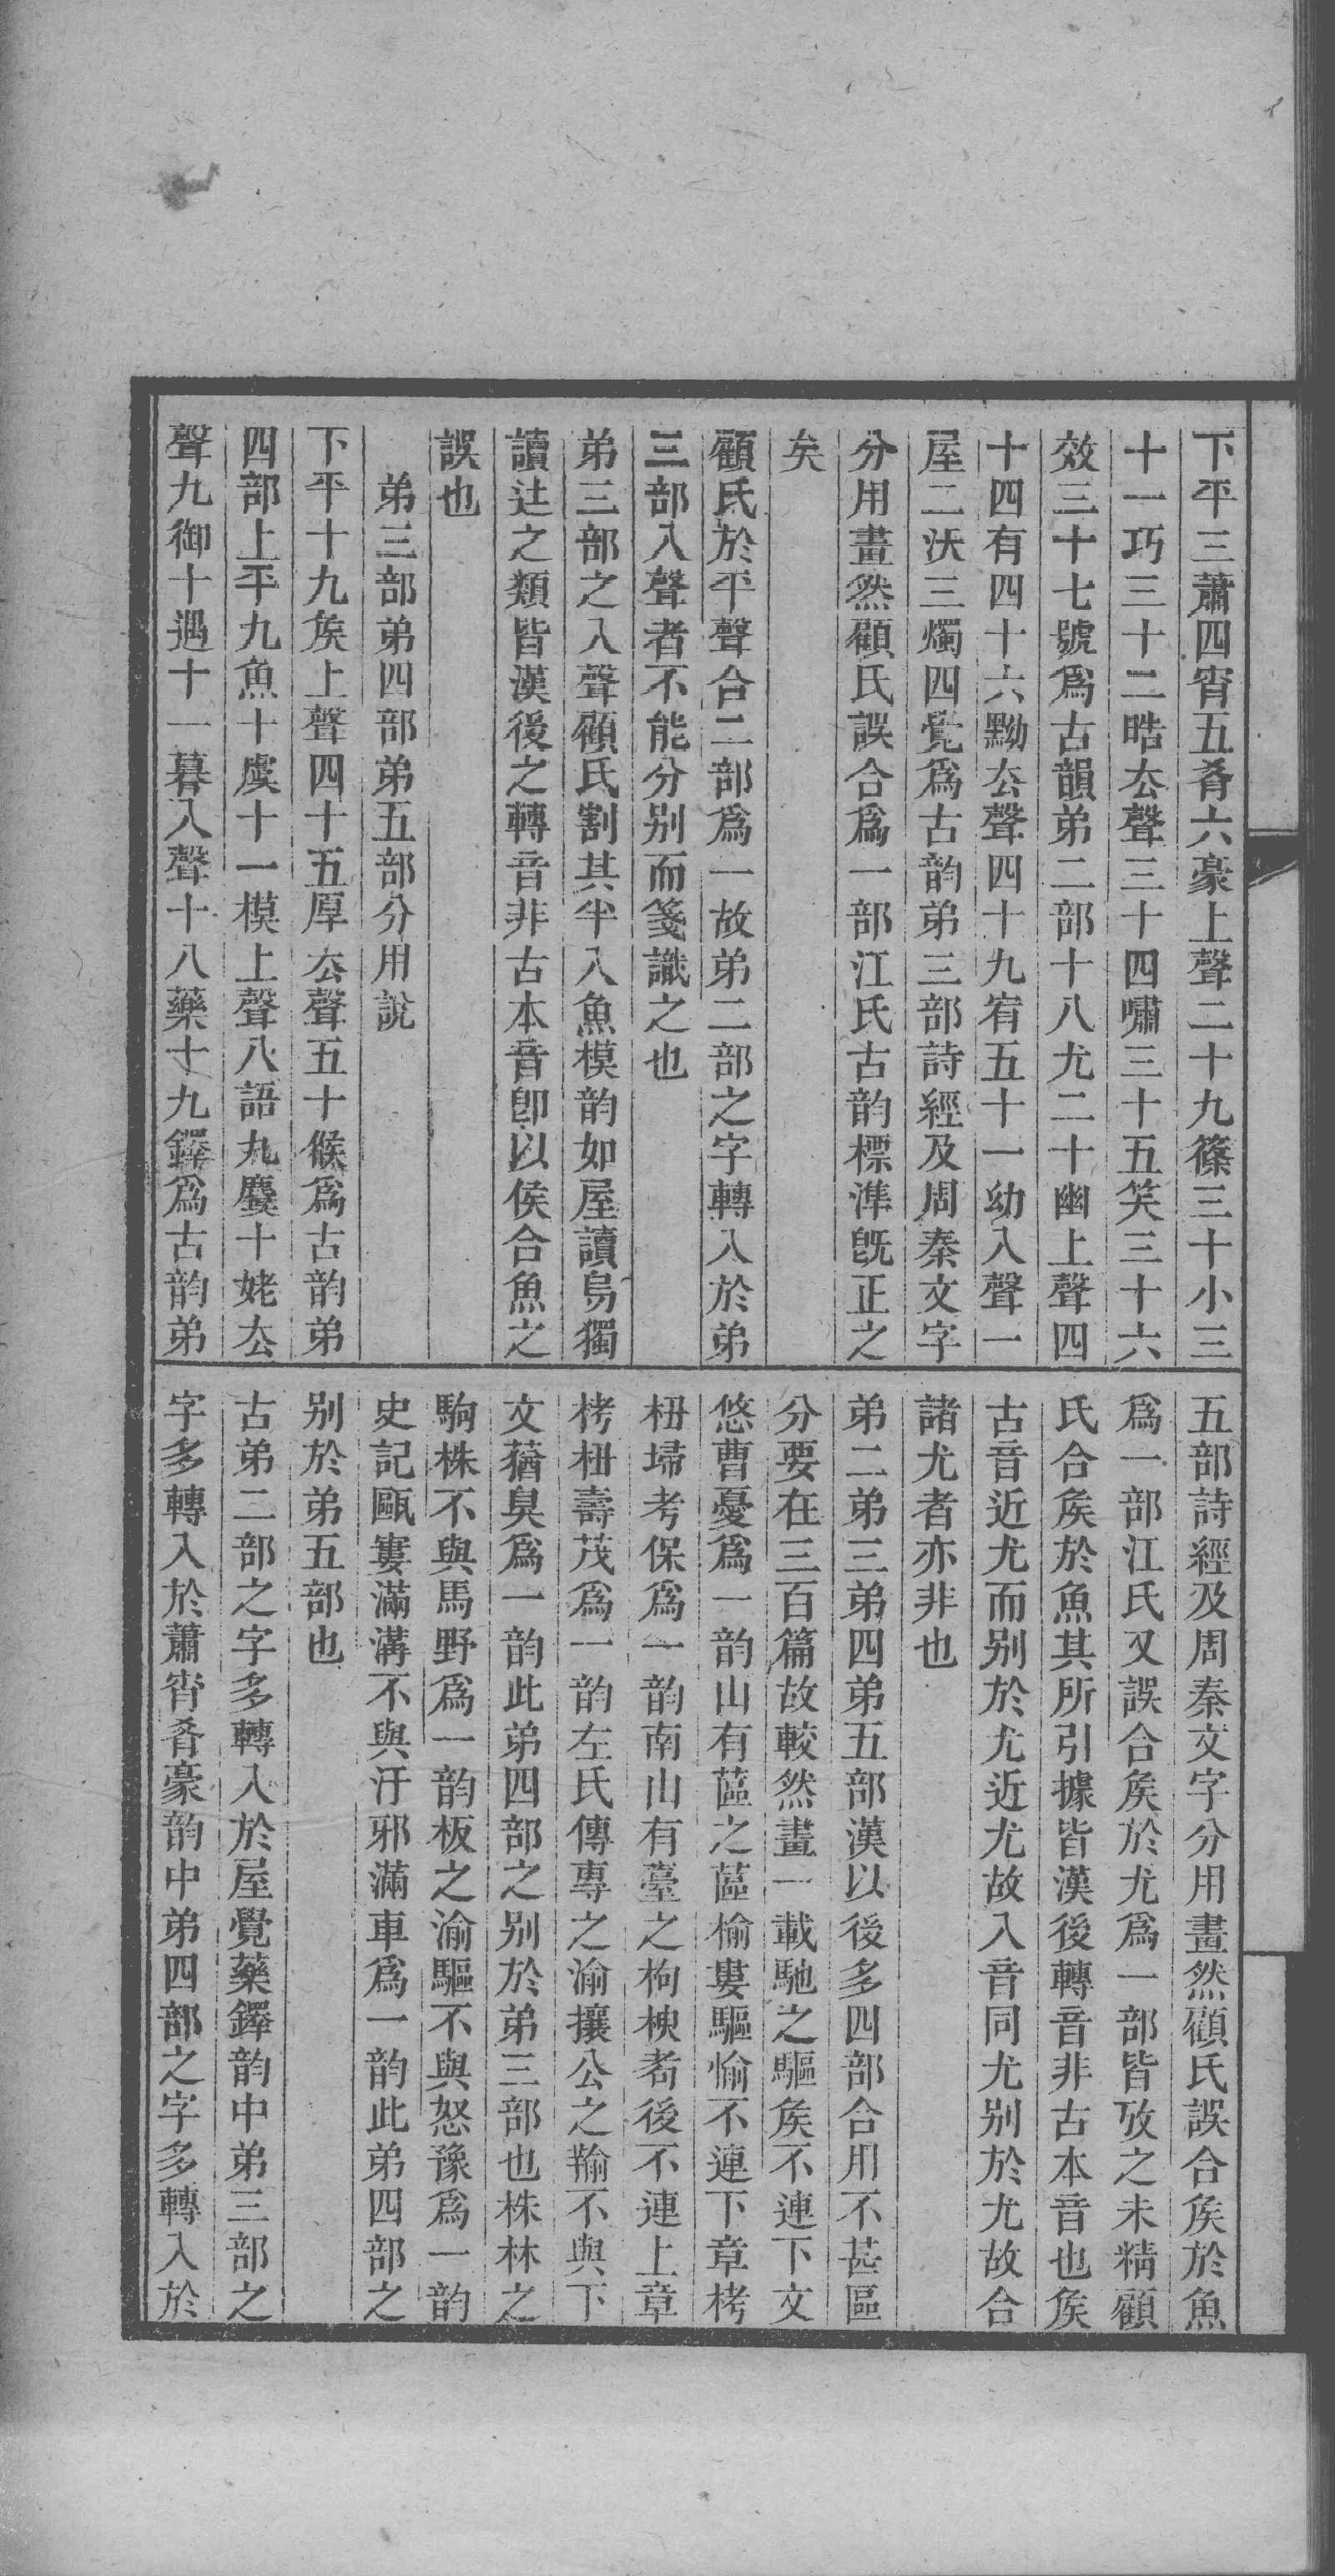 下平三蕭四宵五肴六豪上聲二十九篠三十小三
十一巧三十二晧厺聲三十四嘯三十五笑三十六
效三十七號爲古韻弟二部十八尤二十幽上聲四
十四有四十六黝厺聲四十九宥五十一幼入聲一
屋二沃三燭四覺爲古韵弟三部詩經及周秦文字
分用畫然顧氏誤合爲一部江氏古韵標準旣正之
矣
顧氏於平聲合二部爲一故弟二部之字轉入於弟
三部入聲者不能分别而箋識之也
弟三部之入聲顧氏割其半入魚模韵如屋讀烏獨
讀辻之類皆漢後之轉音非古本音卽以侯合魚之
誤也
弟三部弟四部弟五部分用說
下平十九矦上聲四十五厚厺聲五十候爲古韵弟
四部上平九魚十虞十一模上聲八語九麌十姥厺
聲九御十遇十一暮入聲十八藥十九鐸爲古韵弟
五部詩經及周秦文字分用畫然顧氏誤合矦於魚
爲一部江氏又誤合矦於尤爲一部皆攷之未精顧
氏合矦於魚其所引據皆漢後轉音非古本音也矦
古音近尤而别於尤近尤故入音同尤别於尤故合
諸尤者亦非也
弟二弟三弟四弟五部漢以後多四部合用不甚區
分要在三百篇故較然畫一載馳之驅矦不連下文
悠曹憂爲一韵山有蓲之蓲榆婁驅愉不連下章栲
杻埽考保爲一韵南山有臺之枸楰耇後不連上章
栲杻壽茂爲一韵左氏傳專之渝攘公之羭不與下
文蕕臭爲一韵此弟四部之别於弟三部也株林之
駒株不與馬野爲一韵板之渝驅不與怒豫爲一韵
史記甌寠滿溝不與汙邪滿車爲一韵此弟四部之
别於弟五部也
古弟二部之字多轉入於屋覺藥鐸韵中弟三部之
字多轉入於蕭宵肴豪韵中弟四部之字多轉入於